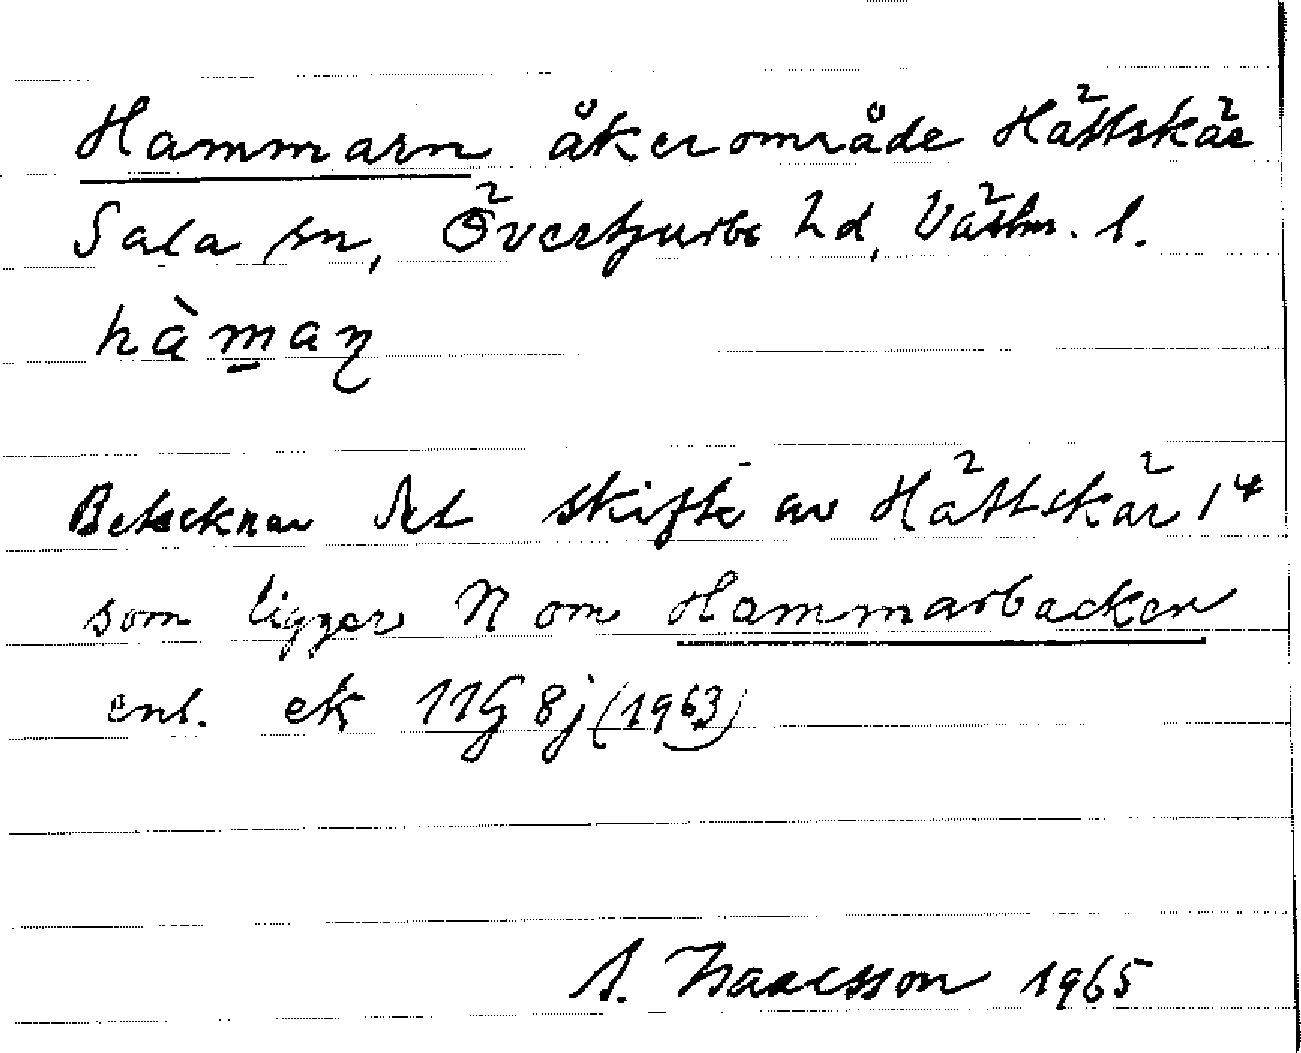 Hammarn åkerområde Hättskär
Sala sn, Övertjurbo hd, Västm. l.
hàman
Betecknar det skifte av Hättskär 1⁴
som ligger N om Hammarbacken
enl. ek 11G 8j (1963)
S. Isacsson 1965